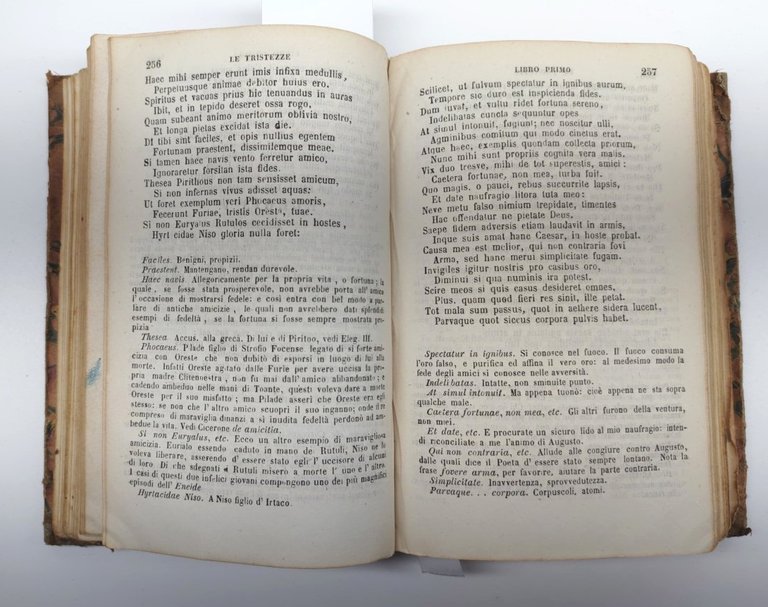 256
LE TRISTEZZE
Haec mihi semper erunt imis infixa medullis,
Perpetuusque animae debitor huius ero.
Spiritus et vacuas prius hic tenuandus in auras
Ibit, et in tepido deseret ossa rogo,
Quam subeant animo meritorum oblivia nostro,
Et longa pietas excidat ista die.
Di tibi sint faciles, et opis nullius egentem
Fortunam praestent, dissimilemque meae.
Si tamen haec navis vento ferretur amico,
Ignoraretur forsitan ista fides.
Thesea Pirithous non tam sensisset amicum,
Si non infernas vivus adisset aquas:
Ut foret exemplum veri Phocaeus amoris,
Fecerunt Furiae, tristis Oresta, tuae.
Si non Euryalus Rutulos cecidisset in hostes,
Hyrtacidae Niso gloria nulla foret:
Faciles. Benigni, propizii.
Praestent. Mantengano, rendan durevole.
Haec navis. Allegoricamente per la propria vita, o fortuna; la
quale, se fosse stata prosperevole, non avrebbe porta all'amico
l'occasione di mostrarsi fedele: e così entra con bel modo a par-
lare di antiche amicizie, le quali non avrebbero dati splendidi
esempi di fedeltà, se la fortuna si fosse sempre mostrata pro-
pizia
Thesea. Accus. alla greca. Di lui e di Piritoo, vedi Eleg. III.
Phocaeus. Pilade figlio di Strofio Focense legato di sì forte ami-
cizia con Oreste che non dubitò di esporsi in luogo di lui alla
morte. Infatti Oreste agitato dalle Furie per avere uccisa la pro-
pria madre Clitennestra, non fu mai dall'amico abbandonato; e
cadendo ambedue nelle mani di Toante, questi voleva dare a morte
Oreste per il suo misfatto; ma Pilade asserì che Oreste era egli
stesso: se non che l'altro amico scuoprì il suo inganno; onde il re
compreso di maraviglia dinanzi a sì inudita fedeltà perdonò ad am-
bedue la vita. Vedi Cicerone de amicitia.
Si non Euryalus, etc. Ecco un altro esempio di maravigliosa
amicizia. Eurialo essendo caduto in mano de' Rutuli, Niso ne lo
voleva liberare, asserendo d'essere stato egli l'uccisore di alcuni
di loro. Di che sdegnati i Rutuli misero a morte l'uno e l'altro.
I casi di questi due infelici giovani compongono uno dei più magnifici
episodi dell'Eneide
Hyrtacidae Niso. A Niso figlio d'Irtaco.
LIBRO PRIMO
257
Scilicet, ut fulvum spectatur in ignibus aurum,
Tempore sic duro est inspicienda fides.
Dum iuvat, et vultu ridet fortuna sereno,
Indelibatas cuncta sequuntur opes
At simul intonuit, fugiunt; nec noscitur ulli,
Agminibus comitum qui modo cinctus erat.
Atque haec, exemplis quondam collecta priorum,
Nunc mihi sunt propriis cognita vera malis.
Vix duo tresve, mihi de tot superestis, amici:
Caetera fortunae, non mea, turba fuit.
Quo magis, o pauci, rebus succurrite lapsis,
Et date naufragio litora tuta meo:
Neve metu falso nimium trepidate, timentes
Hac offendatur ne pietate Deus.
Saepe fidem adversis etiam laudavit in armis,
Inque suis amat hanc Caesar, in hoste probat.
Causa mea est melior, qui non contraria fovi
Arma, sed hanc merui simplicitate fugam.
Invigiles igitur nostris pro casibus oro,
Diminui si qua numinis ira potest.
Scire meos si quis casus desideret omnes,
Plus, quam quod fieri res sinit, ille petat.
Tot mala sum passus, quot in aethere sidera lucent,
Parvaque quot siccus corpora pulvis habet.
Spectatur in ignibus. Si conosce nel fuoco. Il fuoco consuma
l'oro falso, e purifica ed affina il vero oro: al medesimo modo la
fede degli amici si conosce nelle avversità.
Indelibatas. Intatte, non sminuite punto.
At simul intonuit. Ma appena tuonò: cioè appena ne sta sopra
qualche male.
Caetera fortunae, non mea, etc. Gli altri furono della ventura,
non miei.
Et date, etc. E procurate un sicuro lido al mio naufragio: inten-
di riconciliate a me l'animo di Augusto.
Qui non contraria, etc. Allude alle congiure contro Augusto,
dalle quali dice il Poeta d'essere stato sempre lontano. Nota la
frase fovere arma, per favorire, aiutare la parte contraria.
Simplicitate. Inavvertenza, sprovvedutezza.
Parvaque... corpora. Corpuscoli, atomi.